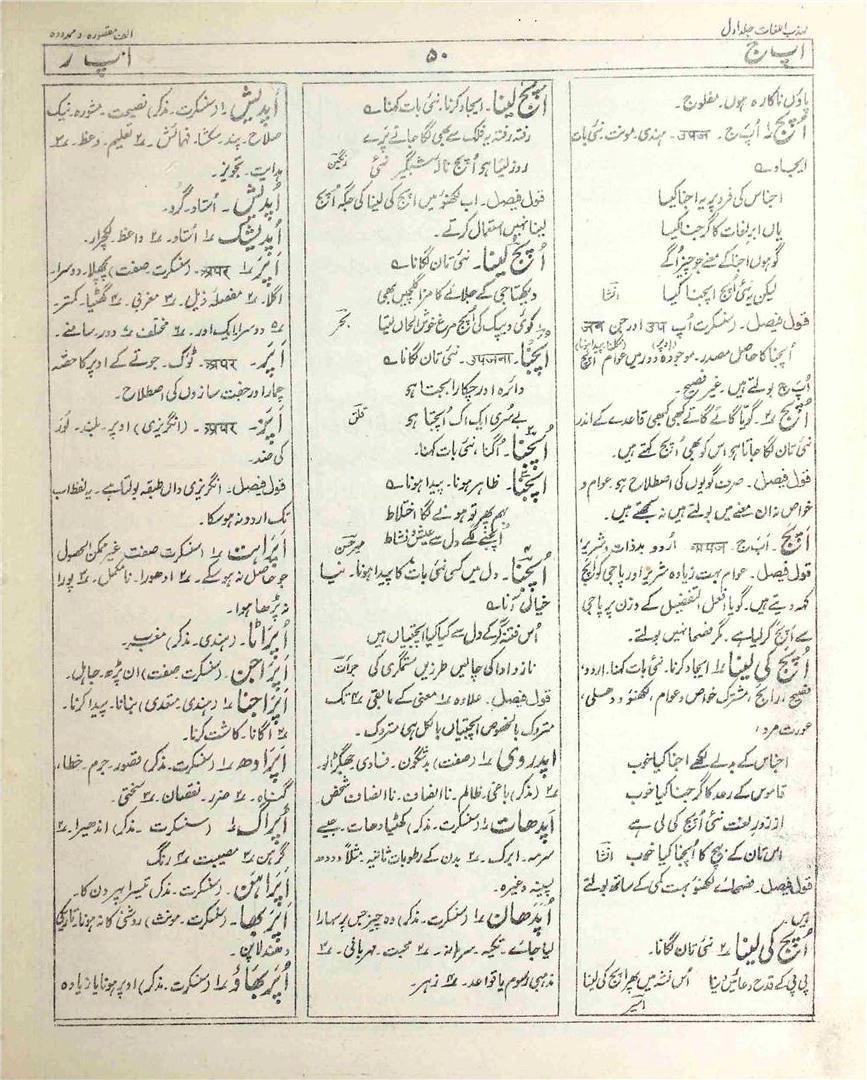 مہذب اللغات جلد اول
الف مقصورہ و ممدودہ
اُپ ج
۵۰
اپ ر
پاؤں ناکارہ ہوں۔ مفلوج۔
اُپَج ؍۱ اُپَ ج۔ उपज۔ ہندی۔ مونث۔ نئی بات
ایجاد ے
اجناس کی فرد پر یہ اجنا کیسا
یاں ابر لغات کا گرجنا کیسا
گو ہوں اجنا کے معنے جو چیز اُگے
لیکن یہ نئی اُپج اپجنا کیسا انشاؔ
قول فیصل۔ (سنسکرت اُپ उप اور جن जन
(اوپر) (نکلنا پیدا ہونا)
اُپجنا کا حاصل مصدر۔ موجودہ دور میں عوام اُپج
اُپ ج بولتے ہیں۔ غیر فصیح۔
اُپَج ؍۲ گویّا گاتے گاتے کبھی کبھی قاعدے کے اندر
نئی تان لگا جاتا ہو اس کو بھی اُپج کہتے ہیں۔
قول فیصل۔ صرف گویوں کی اصطلاح ہو عوام و
خواص نہ ان معنے میں بولتے ہیں نہ سمجھتے ہیں۔
اَپَج۔ اَپَ ج۔ अपज۔ اُردو۔ بدذات، شریر۔
قول فیصل۔ عوام بہت زیادہ شریر اور پاجی کو اَپج
کہہ دیتے ہیں۔ گویا افعل التفضیل کے وزن پر پاجی
سے اَپج کر لیا ہے۔ مگر فصحا نہیں بولتے۔
اُپَج کی لینا ؍۱ ایجاد کرنا۔ نئی بات کہنا۔ اردو،
فصیح، رائج، مشترک خواص و عوام، لکھنؤ و دہلی،
عورت مرد؛
اجناس کے بدلے لکھے اجنا کیا خوب
قاموس کے رعد کا گرجنا کیا خوب
از زور لغت نئی اُپج کی لی ہے
اس تان کے بیچ کا اُپجنا کیا خوب انشاؔ
قول فیصل۔ فصحائے لکھنؤ بہت کمی کے ساتھ بولتے
ہیں۔
اُپَج کی لینا ؍۲ نئی تان لگانا۔
پی پی کے قدح دعائیں دینا اُس نشہ میں پھر اُپج کی لینا
اسیر
اُپَج لینا۔ ایجاد کرنا۔ نئی بات کہنا ے
رفتہ رفتہ یہ فلک سے بھی لگا جاتے پَرے
روز لیتا ہو اُپج نالۂ شبگیر نئی رنگینؔ
قول فیصل۔ اب لکھنؤ میں اُپج کی لینا کی جگہ اُپج
لینا نہیں استعمال کرتے۔
اُپَج لینا۔ نئی تان لگانا ے
دیکھتا جی کے جلانے کا مزا گلچیں بھی
گر کوئی دیپک کی اُپج مرغ خوش الحاں لیتا بحرؔ
اُپَجنا۔ उपजना۔ نئی تان لگانا ے
دائرہ اور چکارا بجتا ہو
بے سُری ایک اک اُپجتا ہو قلقؔ
اُپَجنا۔ اُگنا، نئی بات کہنا۔
اُپَجنا۔ ظاہر ہونا۔ پیدا ہونا ے
بہم پھر تو ہونے لگا اختلاط
اُپجنے لگے دل سے عیش و نشاط میرحسنؔ
اُپَجنا۔ دل میں کسی نئی بات کا پیدا ہونا۔ نیا
خیال آنا ے
اُس فتنہ گر کے دل سے کیا کیا اُپجتیاں ہیں
ناز و ادا کی چالیں طرزیں ستمگری کی جرأتؔ
قول فیصل۔ علاوہ ؍۱ معنی کے مابقی ؍۴ تک
متروک بالخصوص اپجتیاں بالکل ہی متروک۔
اپدروی ؍۱ (صفت) بدشگون۔ فسادی جھگڑالو۔
؍۲ (مذکر) باغی، ظالم۔ ناانصاف۔ ناانصاف شخص۔
اُپدھات ؍۱ (سنسکرت۔ مذکر) گھٹیا دھات۔ جیسے
سرمہ۔ ابرک۔ ؍۲ بدن کے رطوبات ثانیہ مثلاً دودھ
پسینہ وغیرہ۔
اُپدھان ؍۱ (سنسکرت۔ مذکر) وہ چیز جس پر سہارا
لیا جائے۔ تکیہ۔ سرہانہ۔ ؍۲ محبت۔ مہربانی۔ ؍۳
مذہبی رسوم یا قواعد۔ ؍۴ زہر۔
اُپدیش ؍۱ (سنسکرت۔ مذکر) نصیحت۔ مشورہ۔ نیک
صلاح۔ پند۔ سکشا۔ فہمائش۔ ؍۲ تعلیم۔ وعظ۔ ؍۳
ہدایت۔ تجویز۔
اُپدیش۔ اُستاد۔ گرو۔
اُپدیشک ؍۱ اُستاد۔ ؍۲ واعظ۔ لکچرار۔
اَپَر ؍۱ अपर۔ (سنسکرت۔ صفت) پچھلا۔ دوسرا۔
اگلا۔ ؍۲ مفصلہ ذیل۔ ؍۳ مغربی۔ ؍۴ گھٹیا۔ کمتر۔
؍۵ دوسرا ایک اور۔ ؍۶ مختلف ؍۷ دور۔ سامنے۔
اَپَر۔ अपर۔ ٹوک۔ جوتے کے اوپر کا حصّہ
چمار اور جفت سازوں کی اصطلاح۔
اَپَر۔ अपर۔ (انگریزی) اوپر۔ بلند۔ لوَر
کی ضد۔
قول فیصل۔ انگریزی داں طبقہ بولتا ہے۔ یہ لفظ اب
تک اردو نہ ہو سکا۔
اَپرابت ؍۱ (سنسکرت صفت) غیر ممکن الحصول
جو حاصل نہ ہو سکے۔ ؍۲ ادھورا۔ نامکمل۔ ؍۳ پورا
نہ پڑھا ہوا۔
اُپراٹا۔ (ہندی۔ مذکر) مغرب۔
اَپراجن۔ (سنسکرت صفت) ان پڑھ۔ جاہل۔
اُپراجنا ؍۱ (ہندی۔ متعدی) بنانا۔ پیدا کرنا۔
؍۲ اُگانا۔ کاشت کرنا۔
اَپرادھ ؍۱ (سنسکرت۔ مذکر) قصور۔ جرم۔ خطا،
گناہ۔ ؍۲ ضرر۔ نقصان۔ ؍۳ سختی۔
اُپراگ ؍۱ (سنسکرت۔ مذکر) اندھیرا۔ ؍۲
گرہن ؍۳ مصیبت ؍۴ رنگ
اَپراہن۔ (سنسکرت۔ مذکر) تیسرا پہر دن کا۔
اَپربھا۔ (سنسکرت۔ مونث) روشنی کا نہ ہونا۔ تاریکی
دھندلاپن۔
اُپربھاؤ ؍۱ (سنسکرت۔ مذکر) اوپر ہونا یا زیادہ